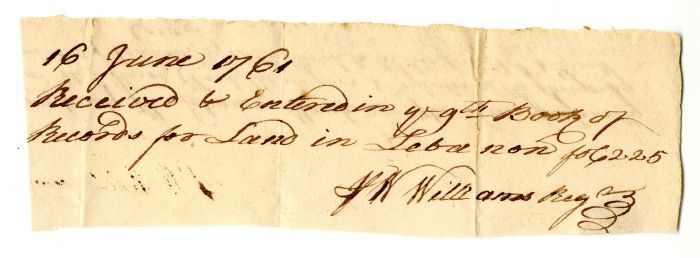 16 June 1761
Received & Entered in ye 9th Book of
Records for Land in Lebanon fo 225
Wm Williams Regr